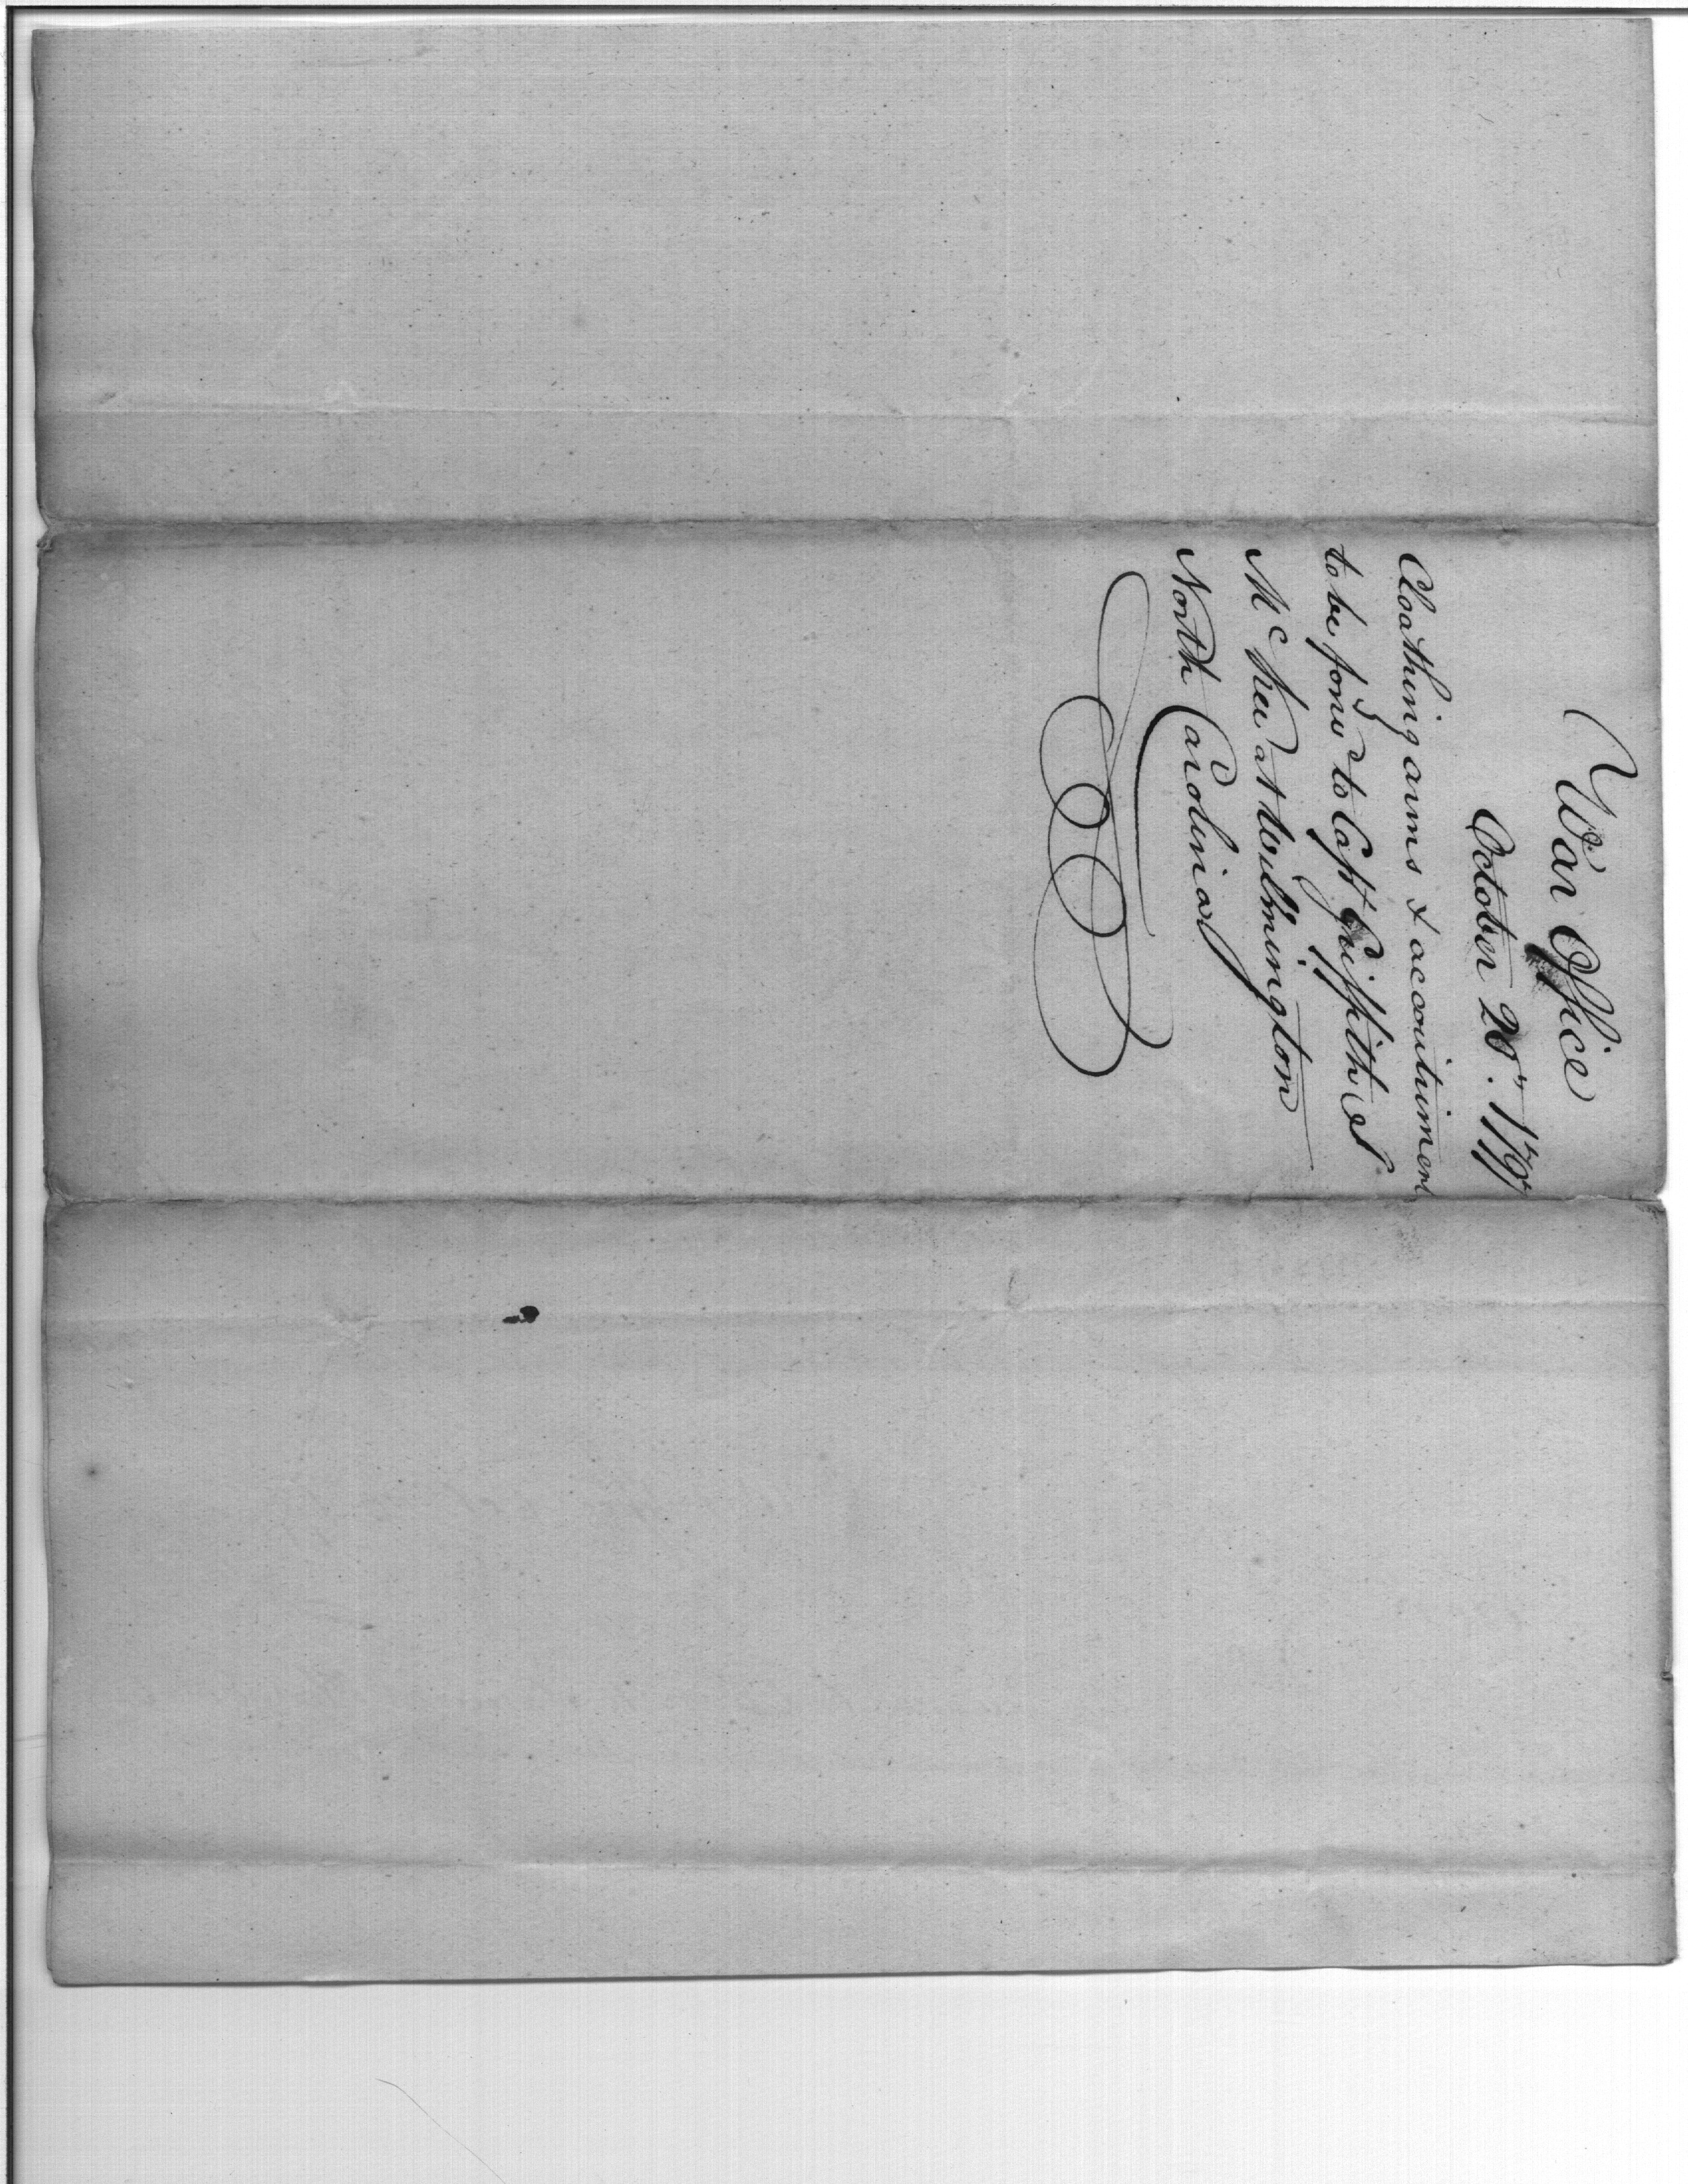 War Office
October 20th. 179
Cloathing arms & accoutrimen
to be forwd to Capt Griffith
McRee at Wilmington
North Carolina